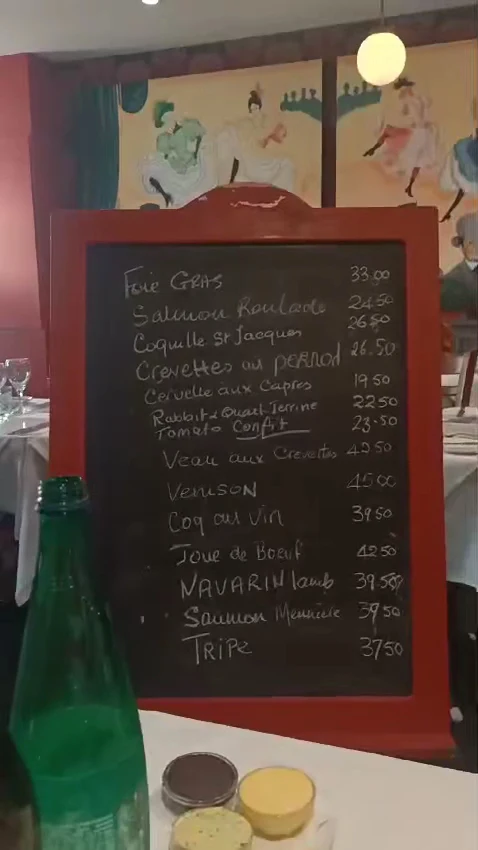 Foie GRAS 33.00
Salmon Roulade 24.50
Coquille St Jacques 26.50
Crevettes au PERNOD 26.50
Cervelle aux Capres 19.50
Rabbit & Quail Terrine 22.50
Tomato Confit 23.50
Veau aux Crevettes 42.50
VENISON 45.00
Coq au Vin 39.50
Joue de Boeuf 42.50
NAVARIN lamb 39.50
Saumon Meuniere 39.50
TRIPE 37.50